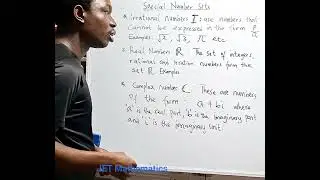 Special Number Sets
* Irrational numbers I: are numbers that
cannot be expressed in the form P/Q
Examples: √2, √3, π etc
* Real Numbers R The set of integers,
rational and irration numbers form the
set R Examples
* Complex numbers C These are numbers
of the form a + bi where
'a' is the real part, 'b' is the imaginary part
and 'i' is the imaginary unit
JET Mathematics